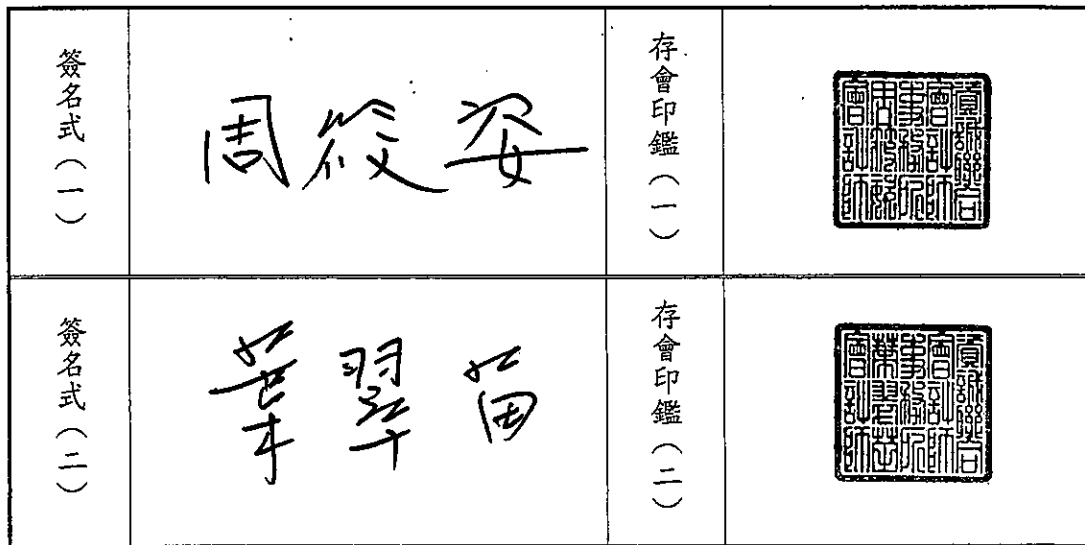 簽名式（一）
周筱姿
存會印鑑（一）
資誠聯合
會計師
事務所
周筱姿
會計師
簽名式（二）
葉翠苗
存會印鑑（二）
資誠聯合
會計師
事務所
葉翠苗
會計師